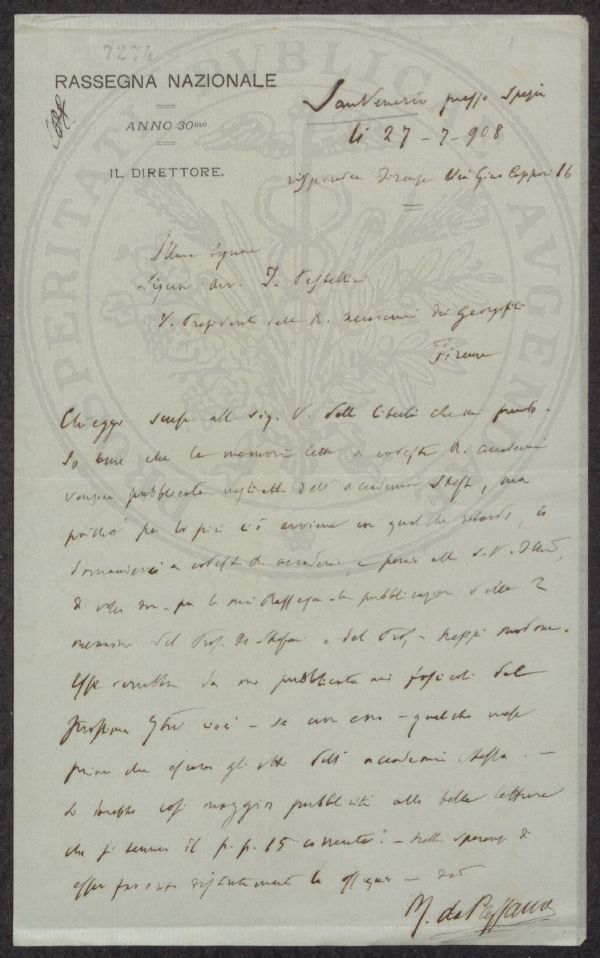 7274
1
RASSEGNA NAZIONALE
ANNO 30mo
IL DIRETTORE.
San Venerio presso Spezia
li 27-7-908
risponder Firenze Via Gino Capponi 16
Signor Avv. I. Pestellini
V. Presidente della R. Accademia dei Georgofili
Firenze
Chieggo scusa alla Sig. V. della libertà che mi prendo.
So bene che le memorie lette a codesta R. Accademia
vengon pubblicate negli atti dell'Accademia stessa, ma
poiché per lo più ciò avviene con qualche ritardo, io
domanderei a codesta R. Accademia, e per essa alla S.V.
di voler per la mia Rassegna la pubblicazione delle 2
memorie del Prof. De Stefani e del Prof.
Esse verrebbero da me pubblicate nei fascicoli del
prossimo 7bre cioè - se non erro - qualche mese
prima che escano gli atti dell'Accademia stessa. -
Si darebbe così maggior pubblicità alle belle letture
che si tennero il p.p. 15 corrente. - Nella speranza di
esser favorito distintamente la ossequio -
M. da Passano
PROSPERITATI PVBLICAE AVGENDAE